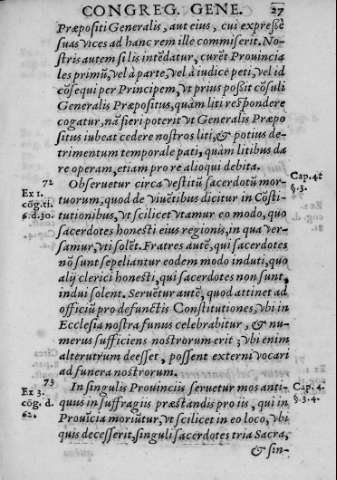 CONGREG. GENE. 27
Præpositi Generalis, aut eius, cui expreßè
suas vices ad hanc rem ille commiserit. No-
stris autem si lis intẽdatur, curẽt Prouincia
les primũ, vel à parte, vel à iudicè peti, vel id
cõsequi per Principem, vt prius poßit cõsuli
Generalis Præpositus, quàm liti respõndere
cogatur, nã fieri poterit vt Generalis Præpo
situs iubeat cedere nostros liti, & potius de-
trimentum temporale pati, quàm litibus da
re operam, etiam pro re alioqui debita.
72
Ex 1.
cõg. ti.
6. d. 30.
Obseruetur circa vestitũ sacerdotũ mor-
tuorum, quod de viuẽtibus dicitur in Cõsti-
tutionibus, vt scilicet vtamur eo modo, quo
sacerdotes honesti eius regionis, in qua ver-
samur, vti solẽt. Fratres autẽ, qui sacerdotes
nõ sunt sepeliantur eodem modo induti, quo
alij clerici honesti, qui sacerdotes non sunt,
indui solent. Seruẽtur autẽ, quod attinet ad
officiũ pro defunctis Constitutiones, vbi in
Ecclesia nostra funus celebrabitur, & nu-
merus sufficiens nostrorum erit; vbi enim
alterutrum deesset, possent externi vocari
ad funera nostrorum.
Cap. 4.
§. 3.
73
Ex 3.
cõg. d.
62.
In singulis Prouinciis seruetur mos anti-
quus in suffragiis præstandis pro iis, qui in
Prouĩcia moriũtur, vt scilicet in eo loco, vbi
quis decesserit, singuli sacerdotes tria Sacra,
Cap. 4.
§. 3. 4.
& sin-